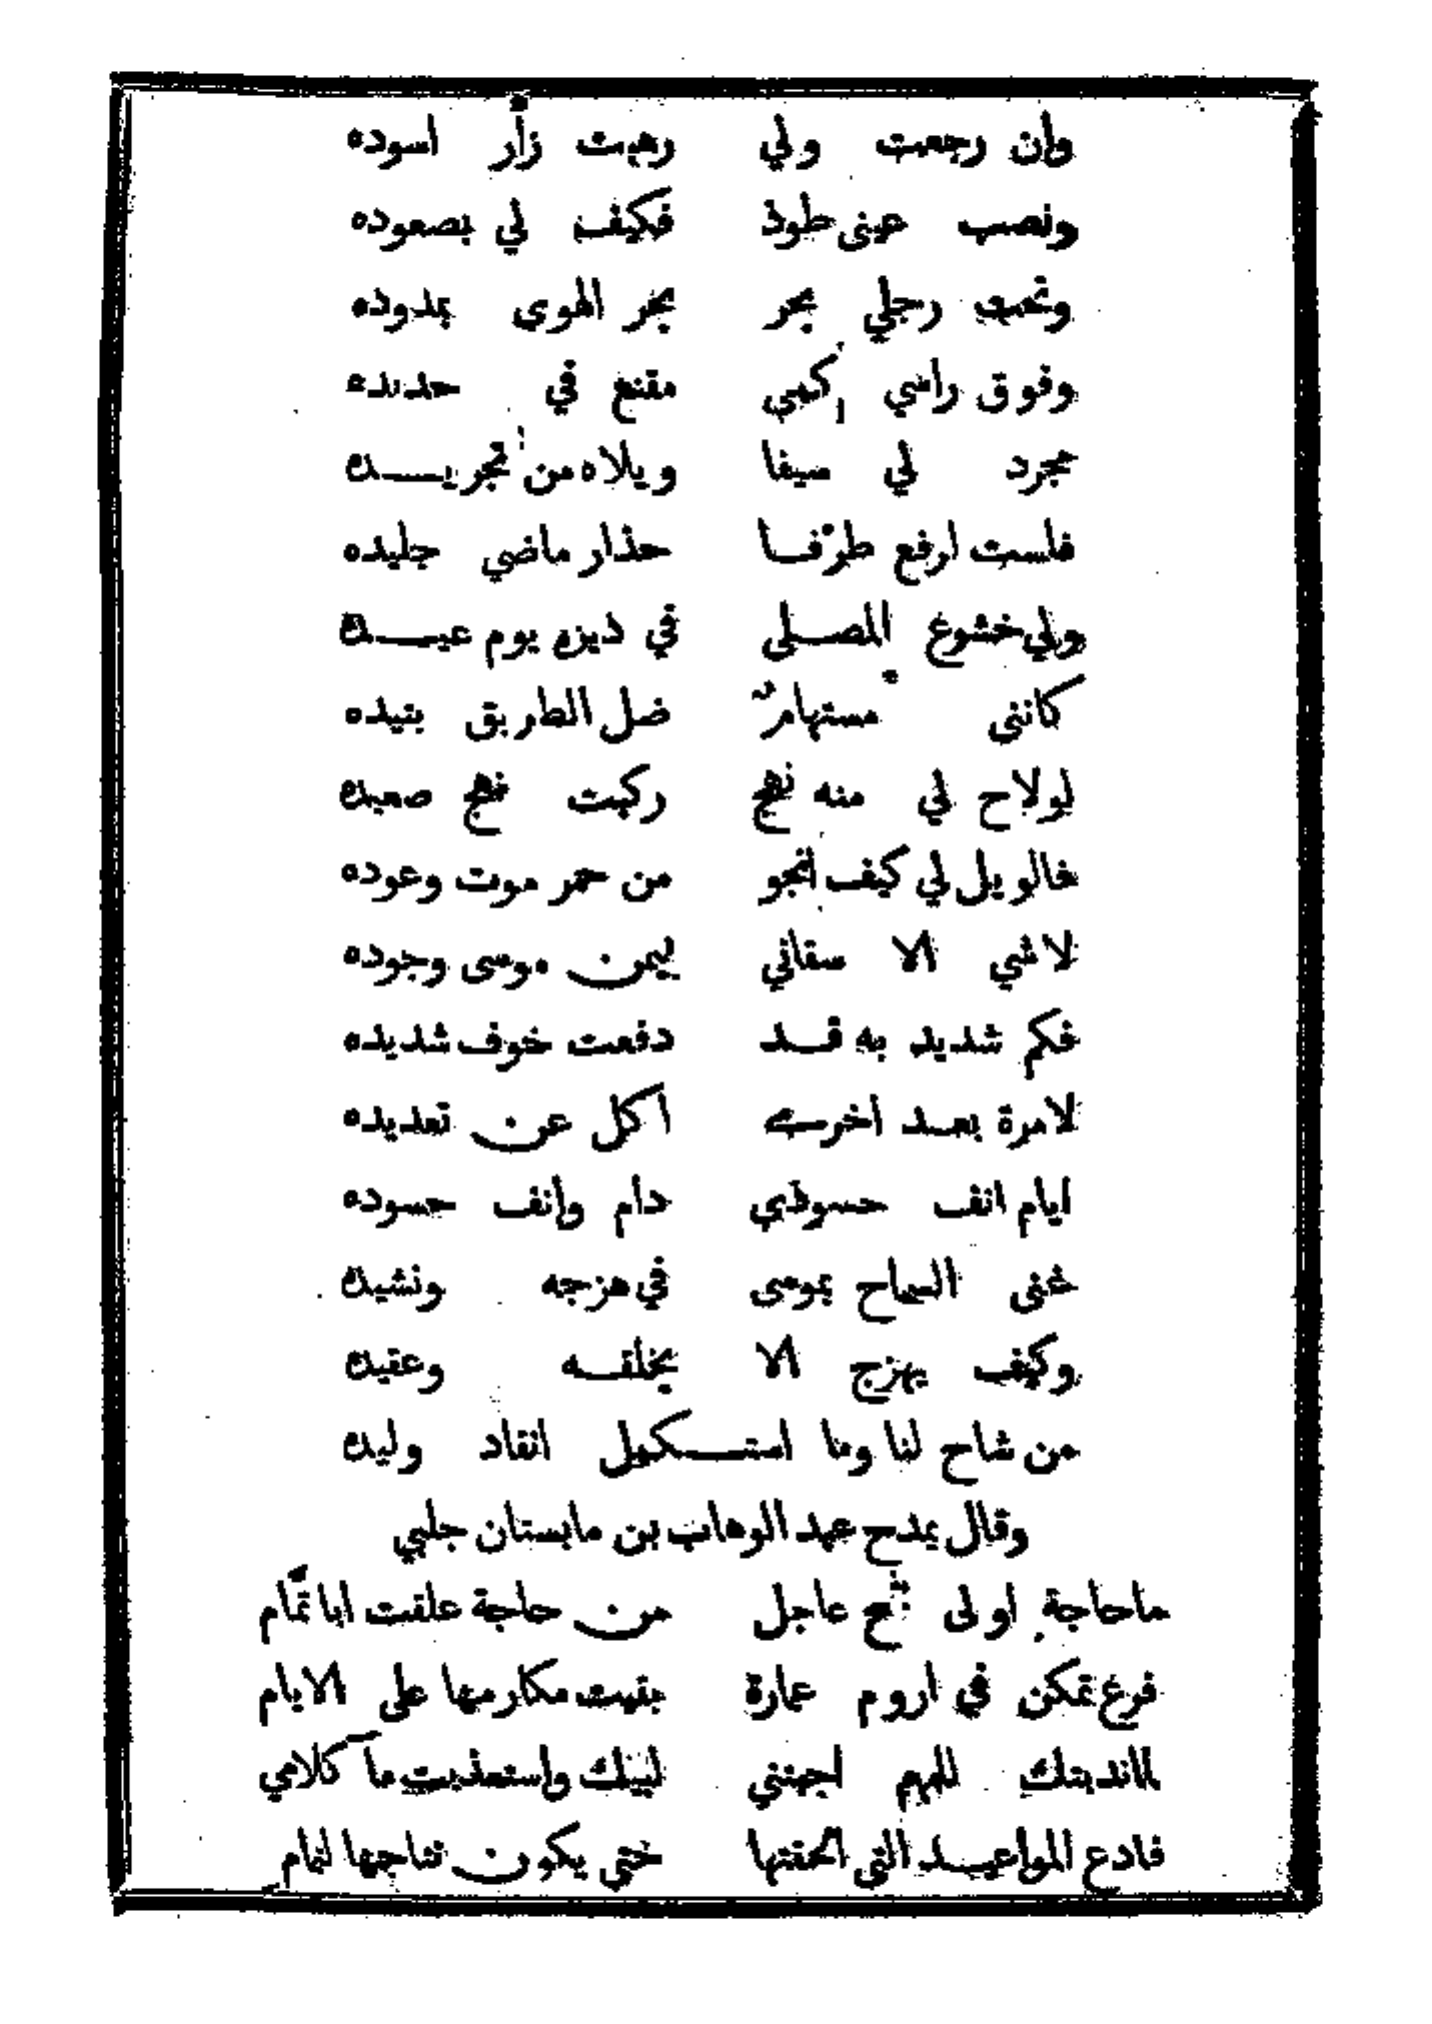 وان رجعت ولي رهبت زأر اسوده
ونصب عيني طوذ فكيف لي بصعوده
وتحت رجلي بحر بحر الهوى بمدوده
وفوق راسي كمي مقنع في حديده
مجرد لي سيفا ويلاه من تجريده
فلست ارفع طرفا حذار ماضي جليده
ولي خشوع المصلى في ديره يوم عيده
كانني مستهام ضل الطريق ببيده
لولاح لي منه نهج ركبت نهج صعيده
فالويل لي كيف انجو من حمر موت وعوده
لاشي الا سقاني بيمن موسى وجوده
فكم شديد به قد دفعت خوف شديده
لامرة بعد اخرى اكل عن تعديده
ايام انف حسودي دام وانف حسوده
غنى السماح بموسى في هزجه ونشيده
وكيف يهزج الا بخلقه وعقيده
من شاح لنا وما استكمل انقاد وليده
وقال يمدح عبد الوهاب بن مابستان جلبي
ماحاجة اولى بنجح عاجل من حاجة علقت ابا تمّام
فرع تمكن في اروم عمارة بقيت مكارمها على الايام
لماندبتك للمهم اجبتني لبيك واستعذبت مآ كلامي
فادع المواعيد التي الحقتها حتى يكون نتاجها لتمام